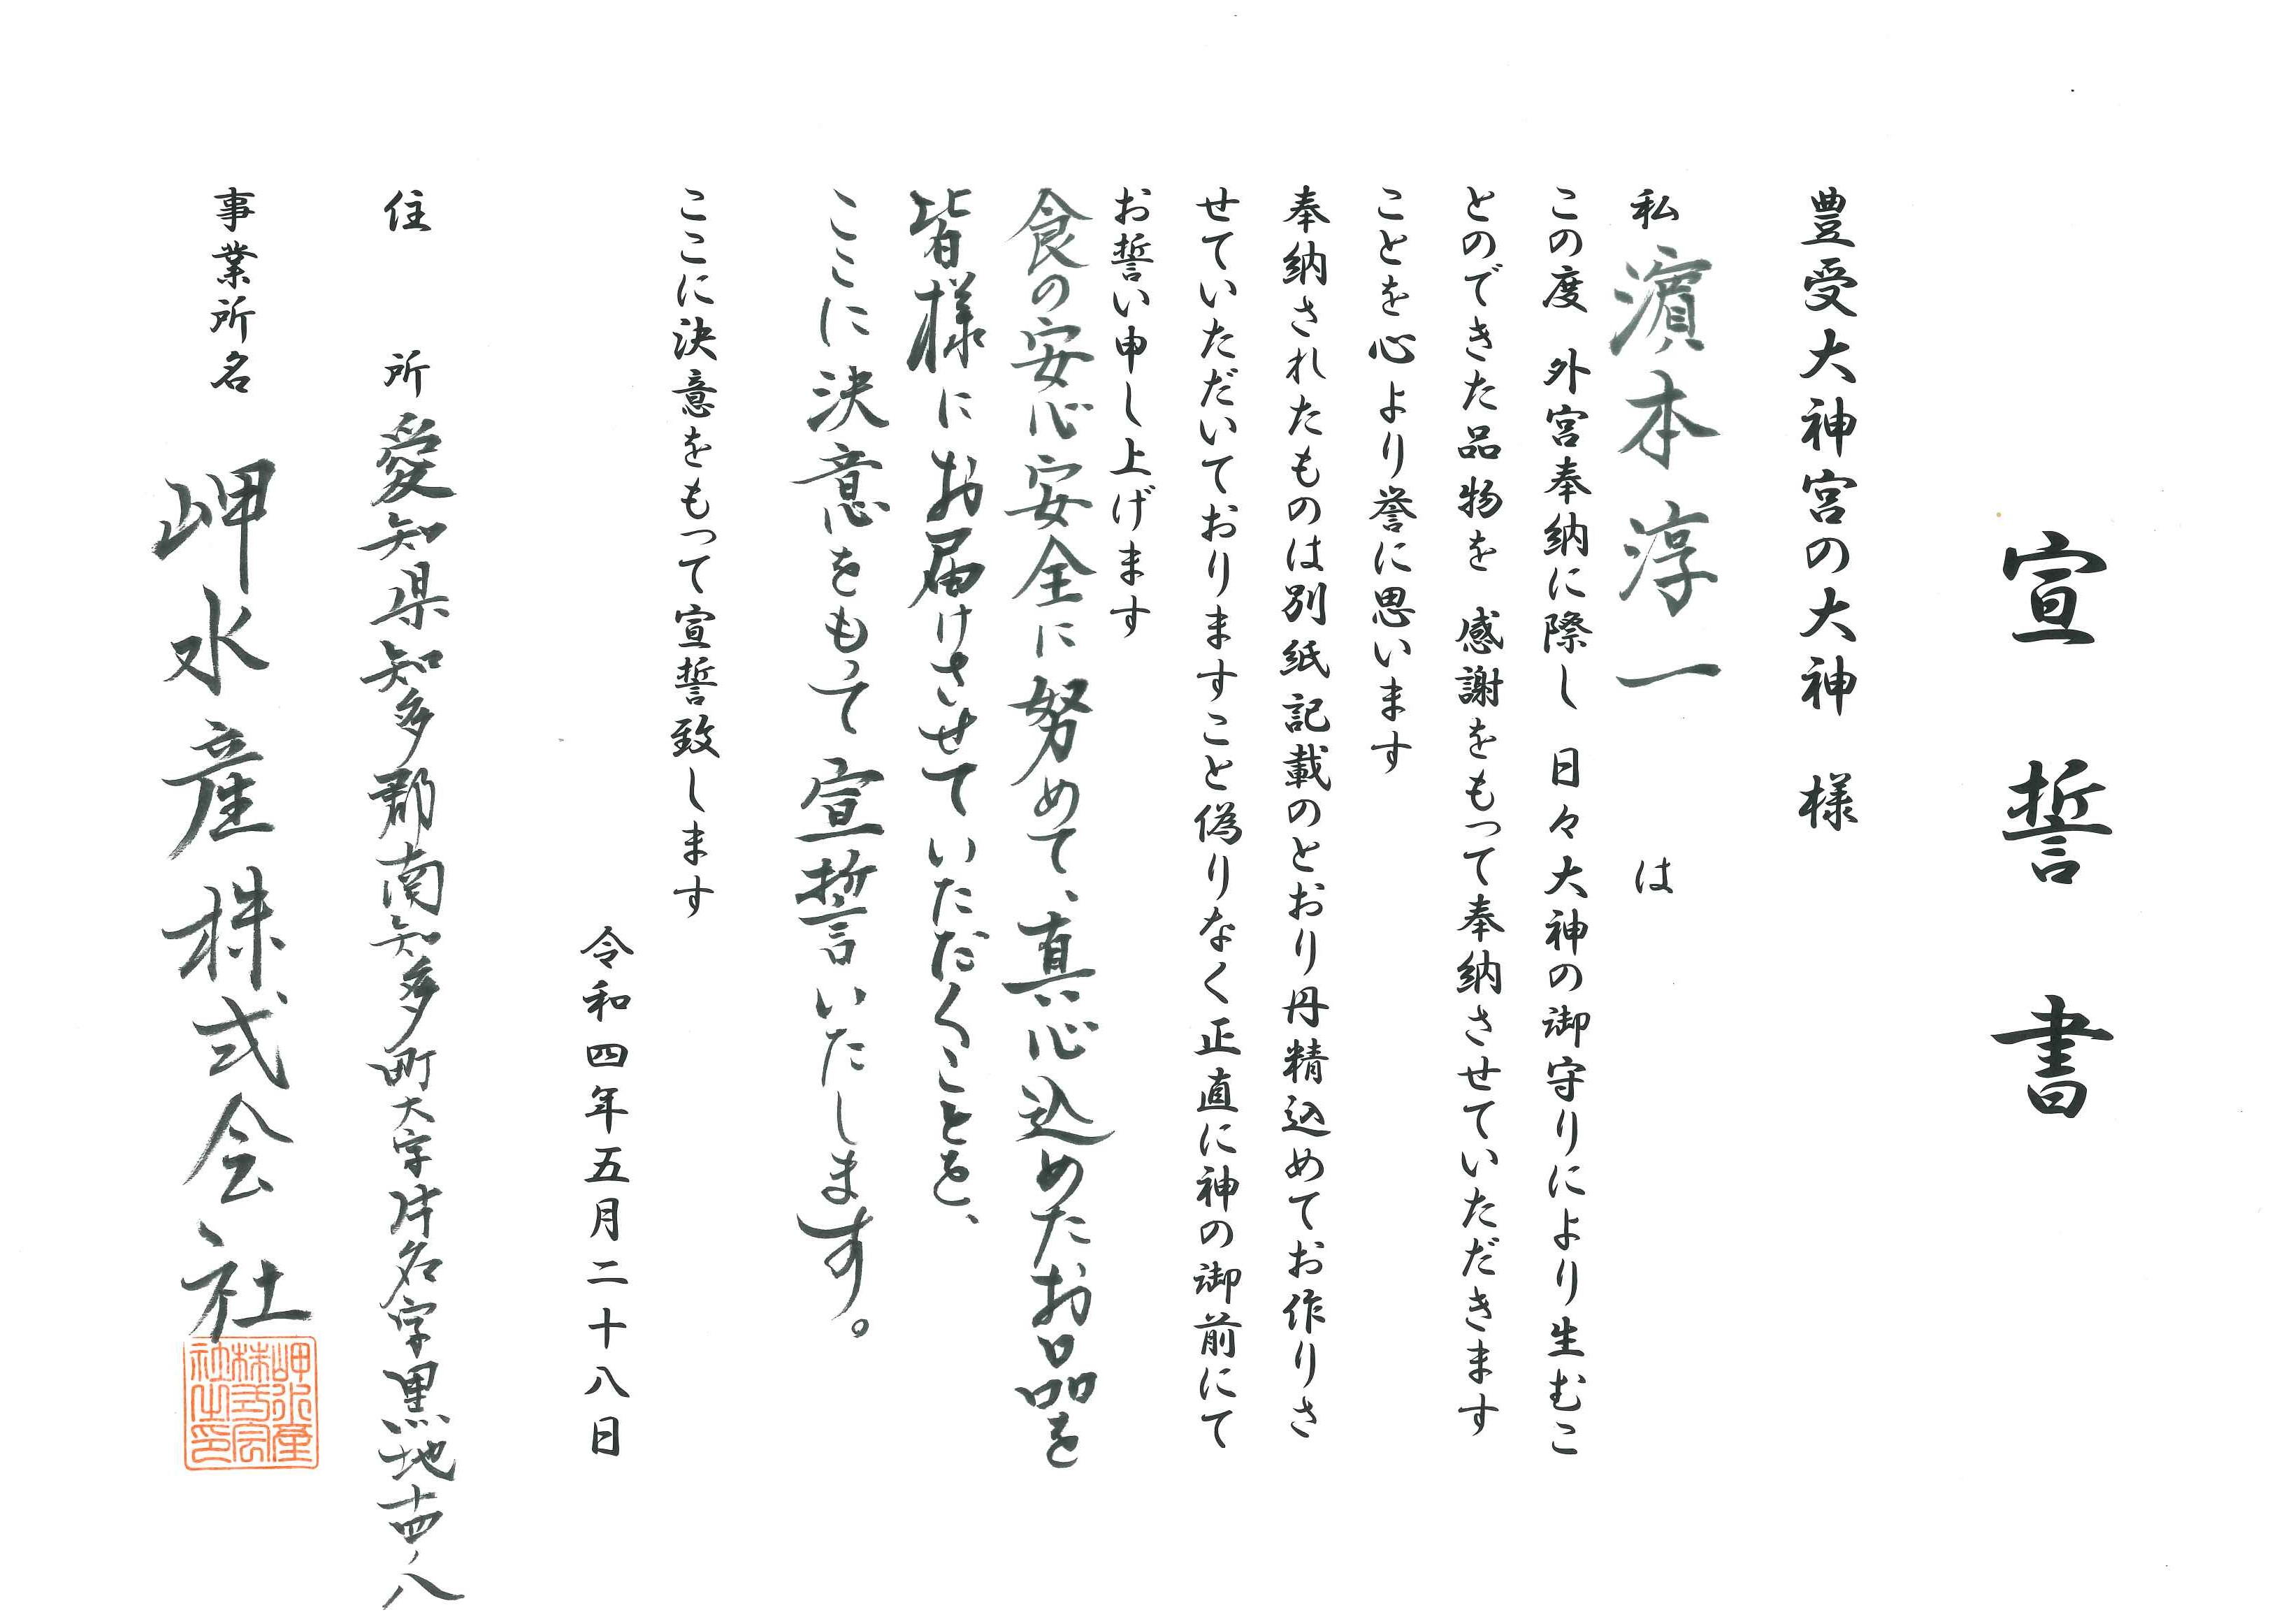 宣誓書
豊受大神宮の大神 様
私 濵本淳一 は
この度 外宮奉納に際し 日々大神の御守りにより生むこ
とのできた品物を 感謝をもって奉納させていただきます
ことを心より誉に思います
奉納されたものは別紙記載のとおり丹精込めてお作りさ
せていただいておりますこと偽りなく正直に神の御前にて
お誓い申し上げます
食の安心安全に努めて、真心込めたお品を
皆様にお届けさせていただくことを、
ここに決意をもって宣誓いたします。
ここに決意をもって宣誓致します
令和四年五月二十八日
住 所 愛知県知多郡南知多町大字片名字黒地十四ノ八
事業所名 岬水産株式会社
岬水産
株式会
社之印